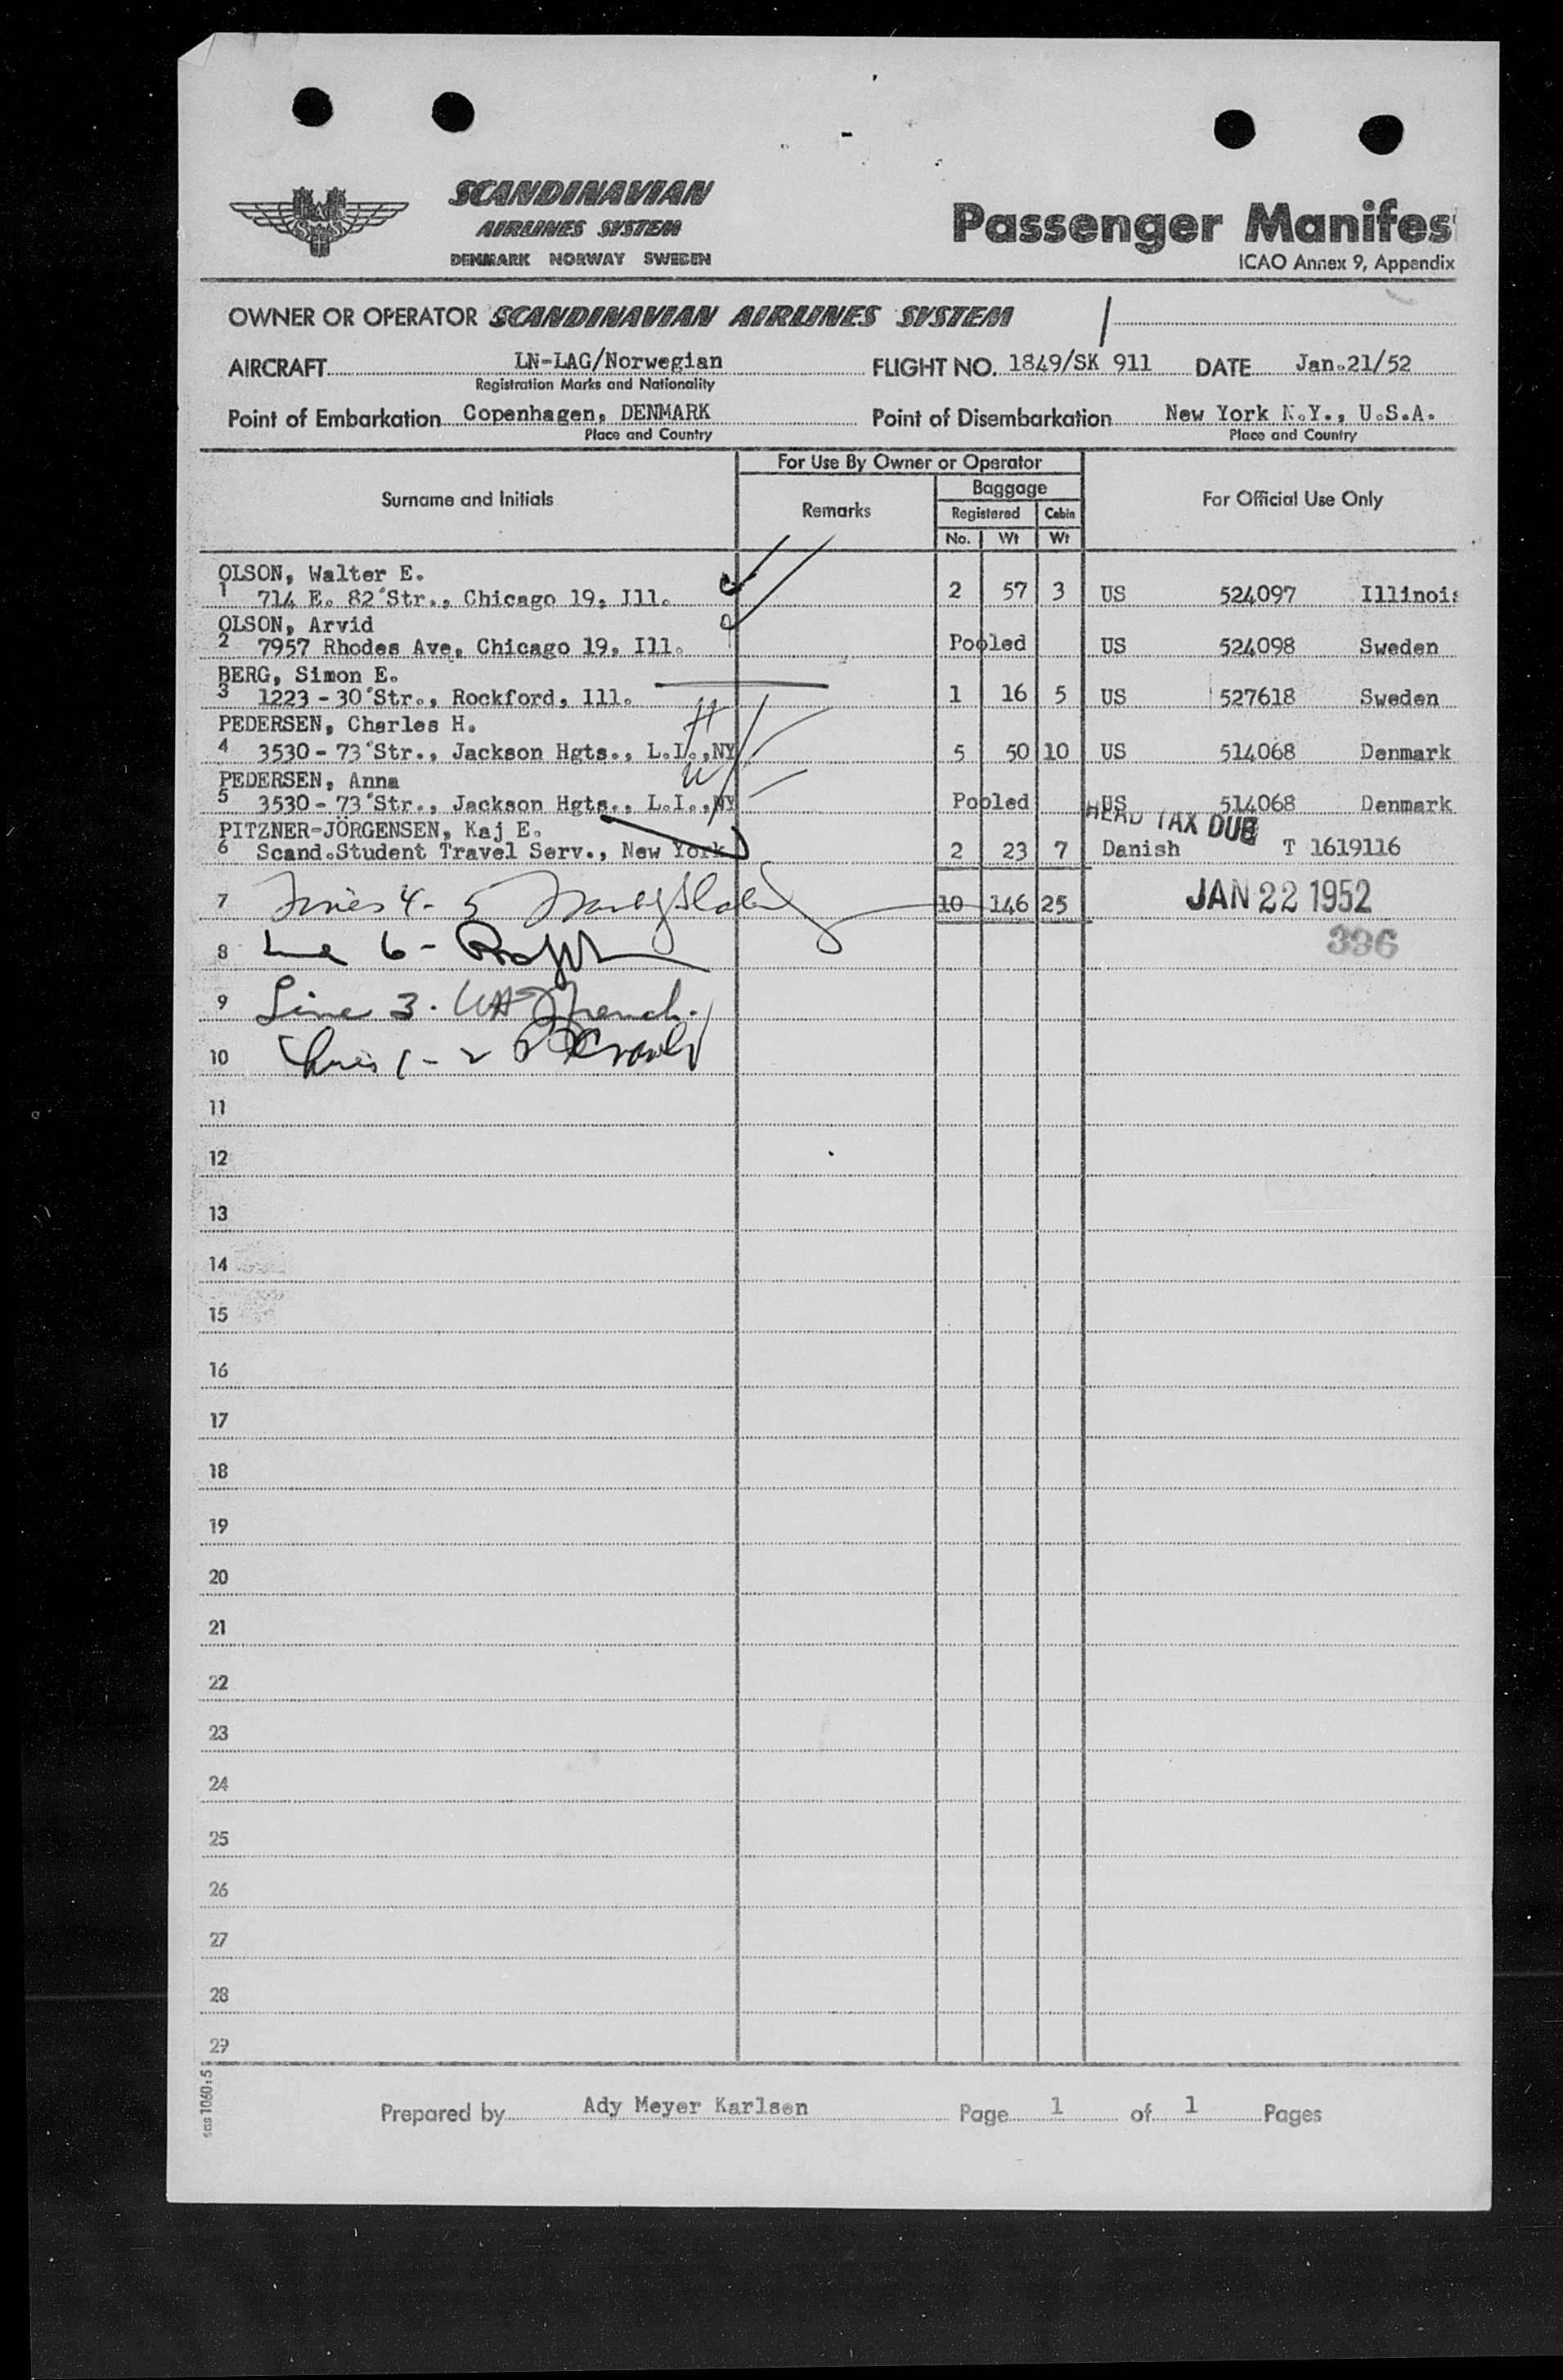 SCANDINAVIAN
AIRLINES SYSTEM
DENMARK NORWAY SWEDEN
Passenger Manifes
ICAO Annex 9, Appendix
OWNER OR OPERATOR SCANDINAVIAN AIRLINES SYSTEM
AIRCRAFT LN-LAG/Norwegian FLIGHT NO. 1849/SK 911 DATE Jan.21/52
Registration Marks and Nationality
Point of Embarkation Copenhagen, DENMARK Point of Disembarkation New York N.Y., U.S.A.
Place and Country Place and Country
For Use By Owner or Operator
Surname and Initials Remarks Baggage For Official Use Only
Registered Cabin
No. Wt Wt
OLSON, Walter E.
1 714 E. 82'Str., Chicago 19, Ill. 2 57 3 US 524097 Illinois
OLSON, Arvid
2 7957 Rhodes Ave, Chicago 19, Ill. Pooled US 524098 Sweden
BERG, Simon E.
3 1223 - 30'Str., Rockford, Ill. 1 16 5 US 527618 Sweden
PEDERSEN, Charles H.
4 3530 - 73'Str., Jackson Hgts., L.I.,NY 5 50 10 US 514068 Denmark
PEDERSEN, Anna
5 3530 - 73'Str., Jackson Hgts., L.I.,NY Pooled US 514068 Denmark
HEAD TAX DUE
PITZNER-JÖRGENSEN, Kaj E.
6 Scand.Student Travel Serv., New York 2 23 7 Danish T 1619116
7 Lines 4 - 5 10 146 25 JAN 22 1952
8 Line 6 - 336
9 Line 3. French.
10 Lines 1 - 2
11
12
13
14
15
16
17
18
19
20
21
22
23
24
25
26
27
28
29
sas 1060:5
Prepared by Ady Meyer Karlsen Page 1 of 1 Pages